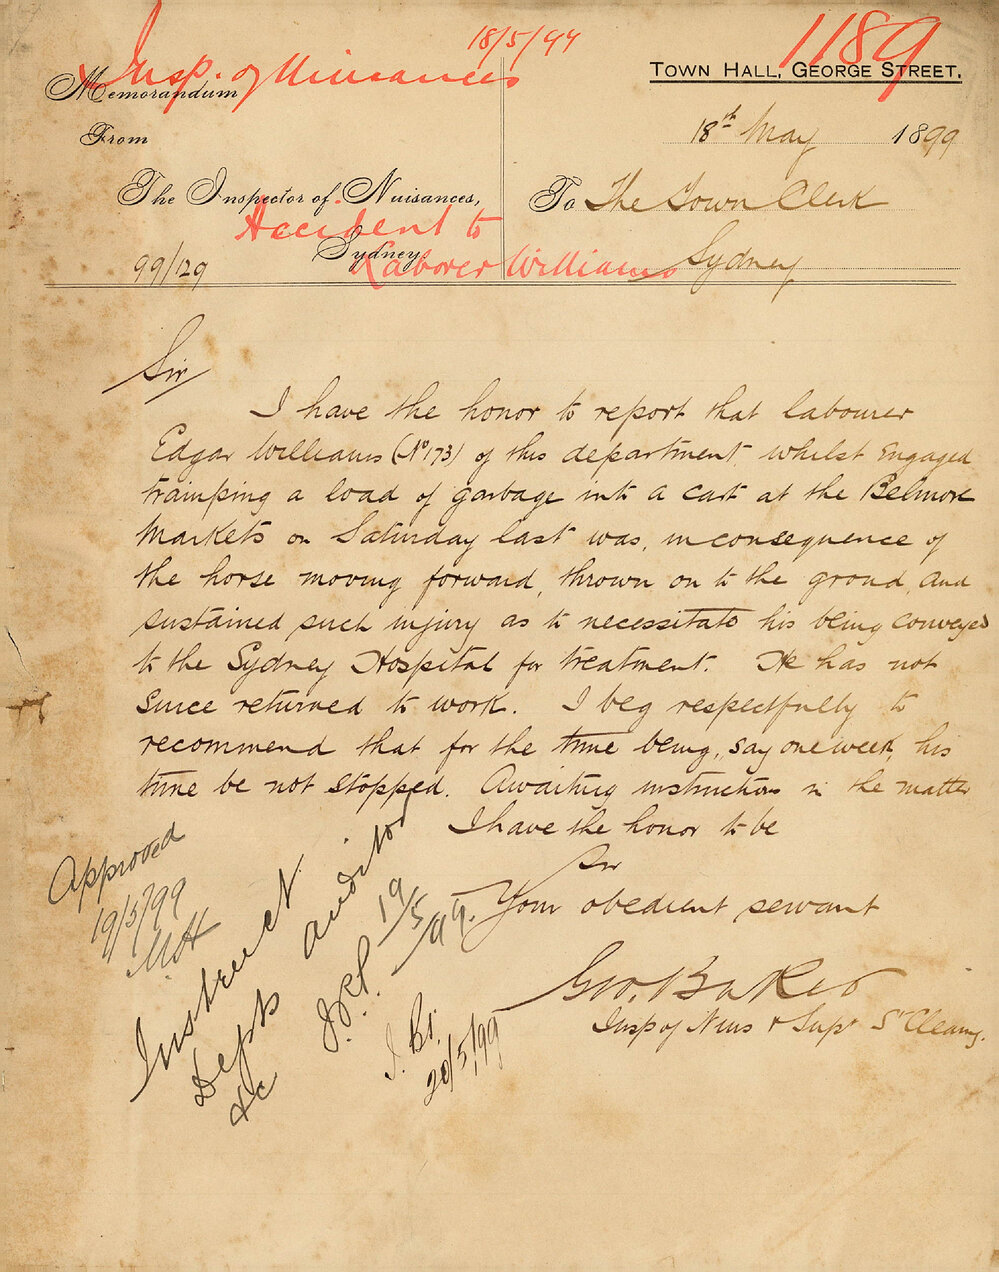 18/5/99
1189
Insp. of Nuisances
Memorandum
TOWN HALL, GEORGE STREET.
From
18th May 1899
The Inspector of Nuisances,
To The Town Clerk
Accident to
Sydney
Laborer Williams
Sydney
99/129
Sir
I have the honor to report that labourer
Edgar Williams (No 173) of this department, whilst engaged
tramping a load of garbage into a cart at the Belmore
Markets on Saturday last was, in consequence of
the horse moving forward, thrown on to the ground, and
sustained such injury as to necessitate his being conveyed
to the Sydney Hospital for treatment. He has not
since returned to work. I beg respectfully to
recommend that for the time being, say one week, his
time be not stopped. Awaiting instructions in the matter
I have the honor to be
Sir
Your obedient servant
Geo. Baker
Insp of Nuis & Supt St Cleang.
Approved
19/5/99
Instruct auditor
Depts
&c
19/5/99.
20/5/99